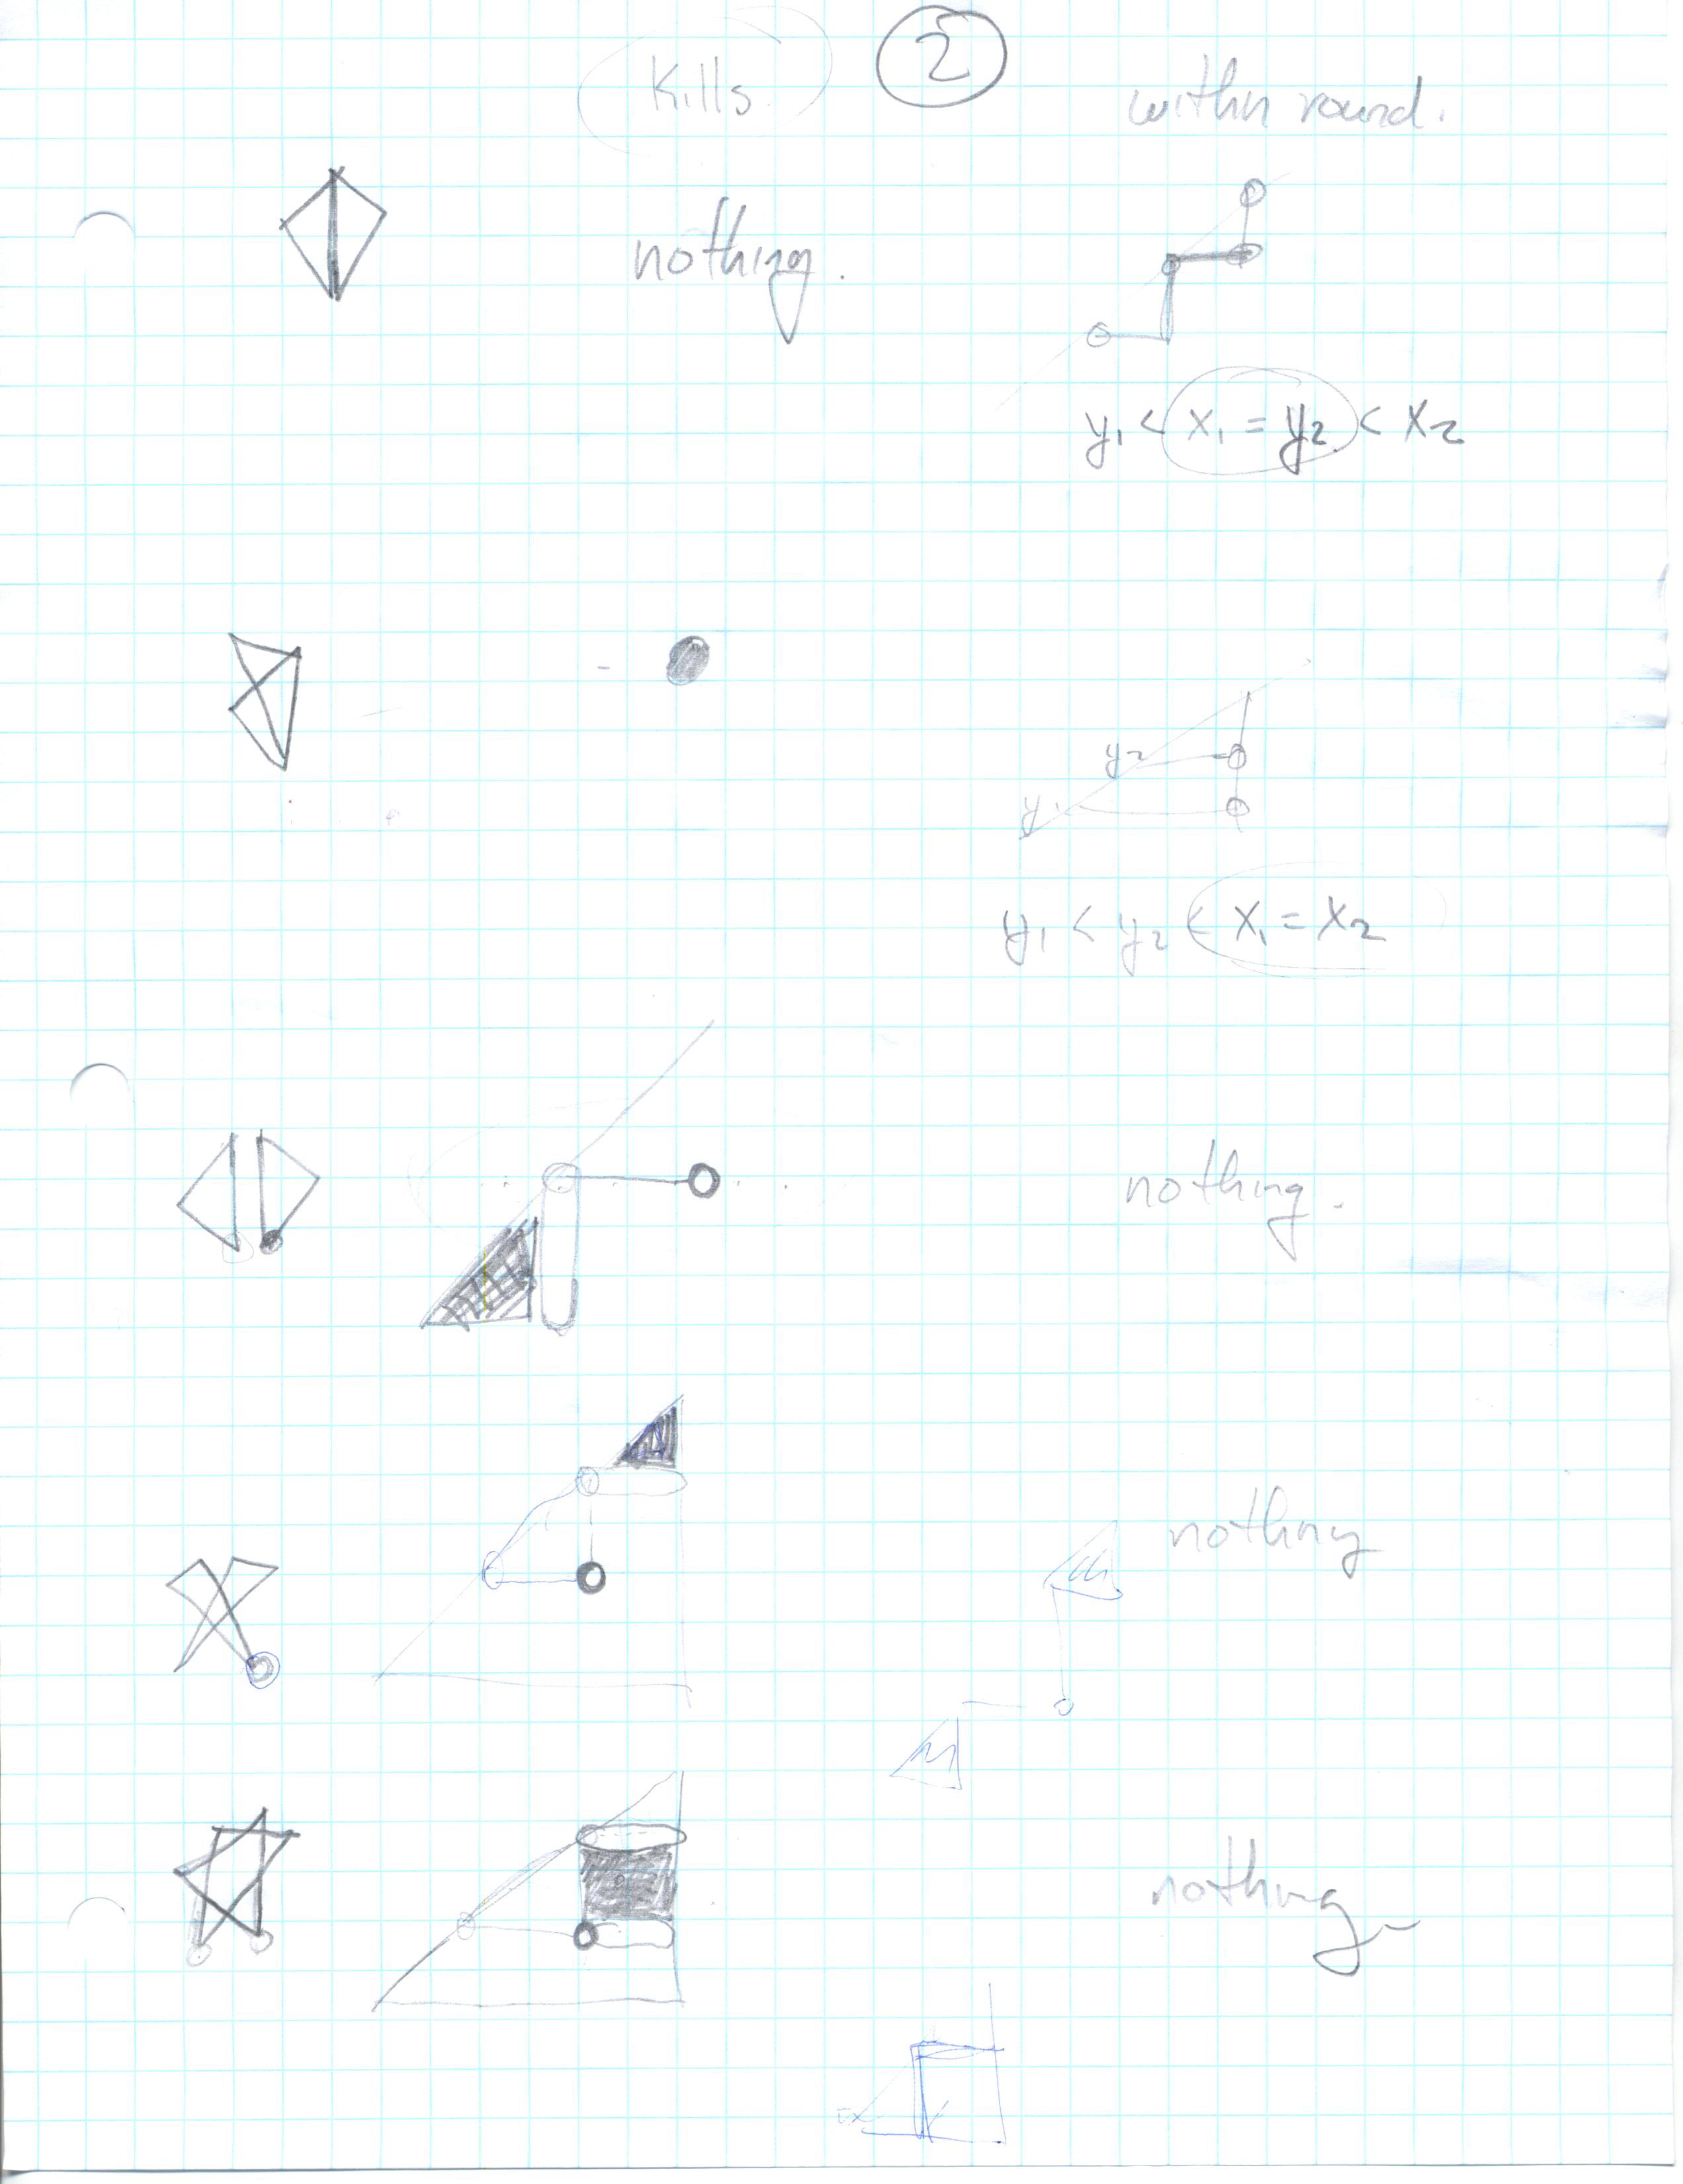 Kills 2 within round.
nothing.
y₁ < x₁ = y₂ < x₂
y₂
y₁
y₁ < y₂ < x₁ = x₂
nothing.
nothing
nothing